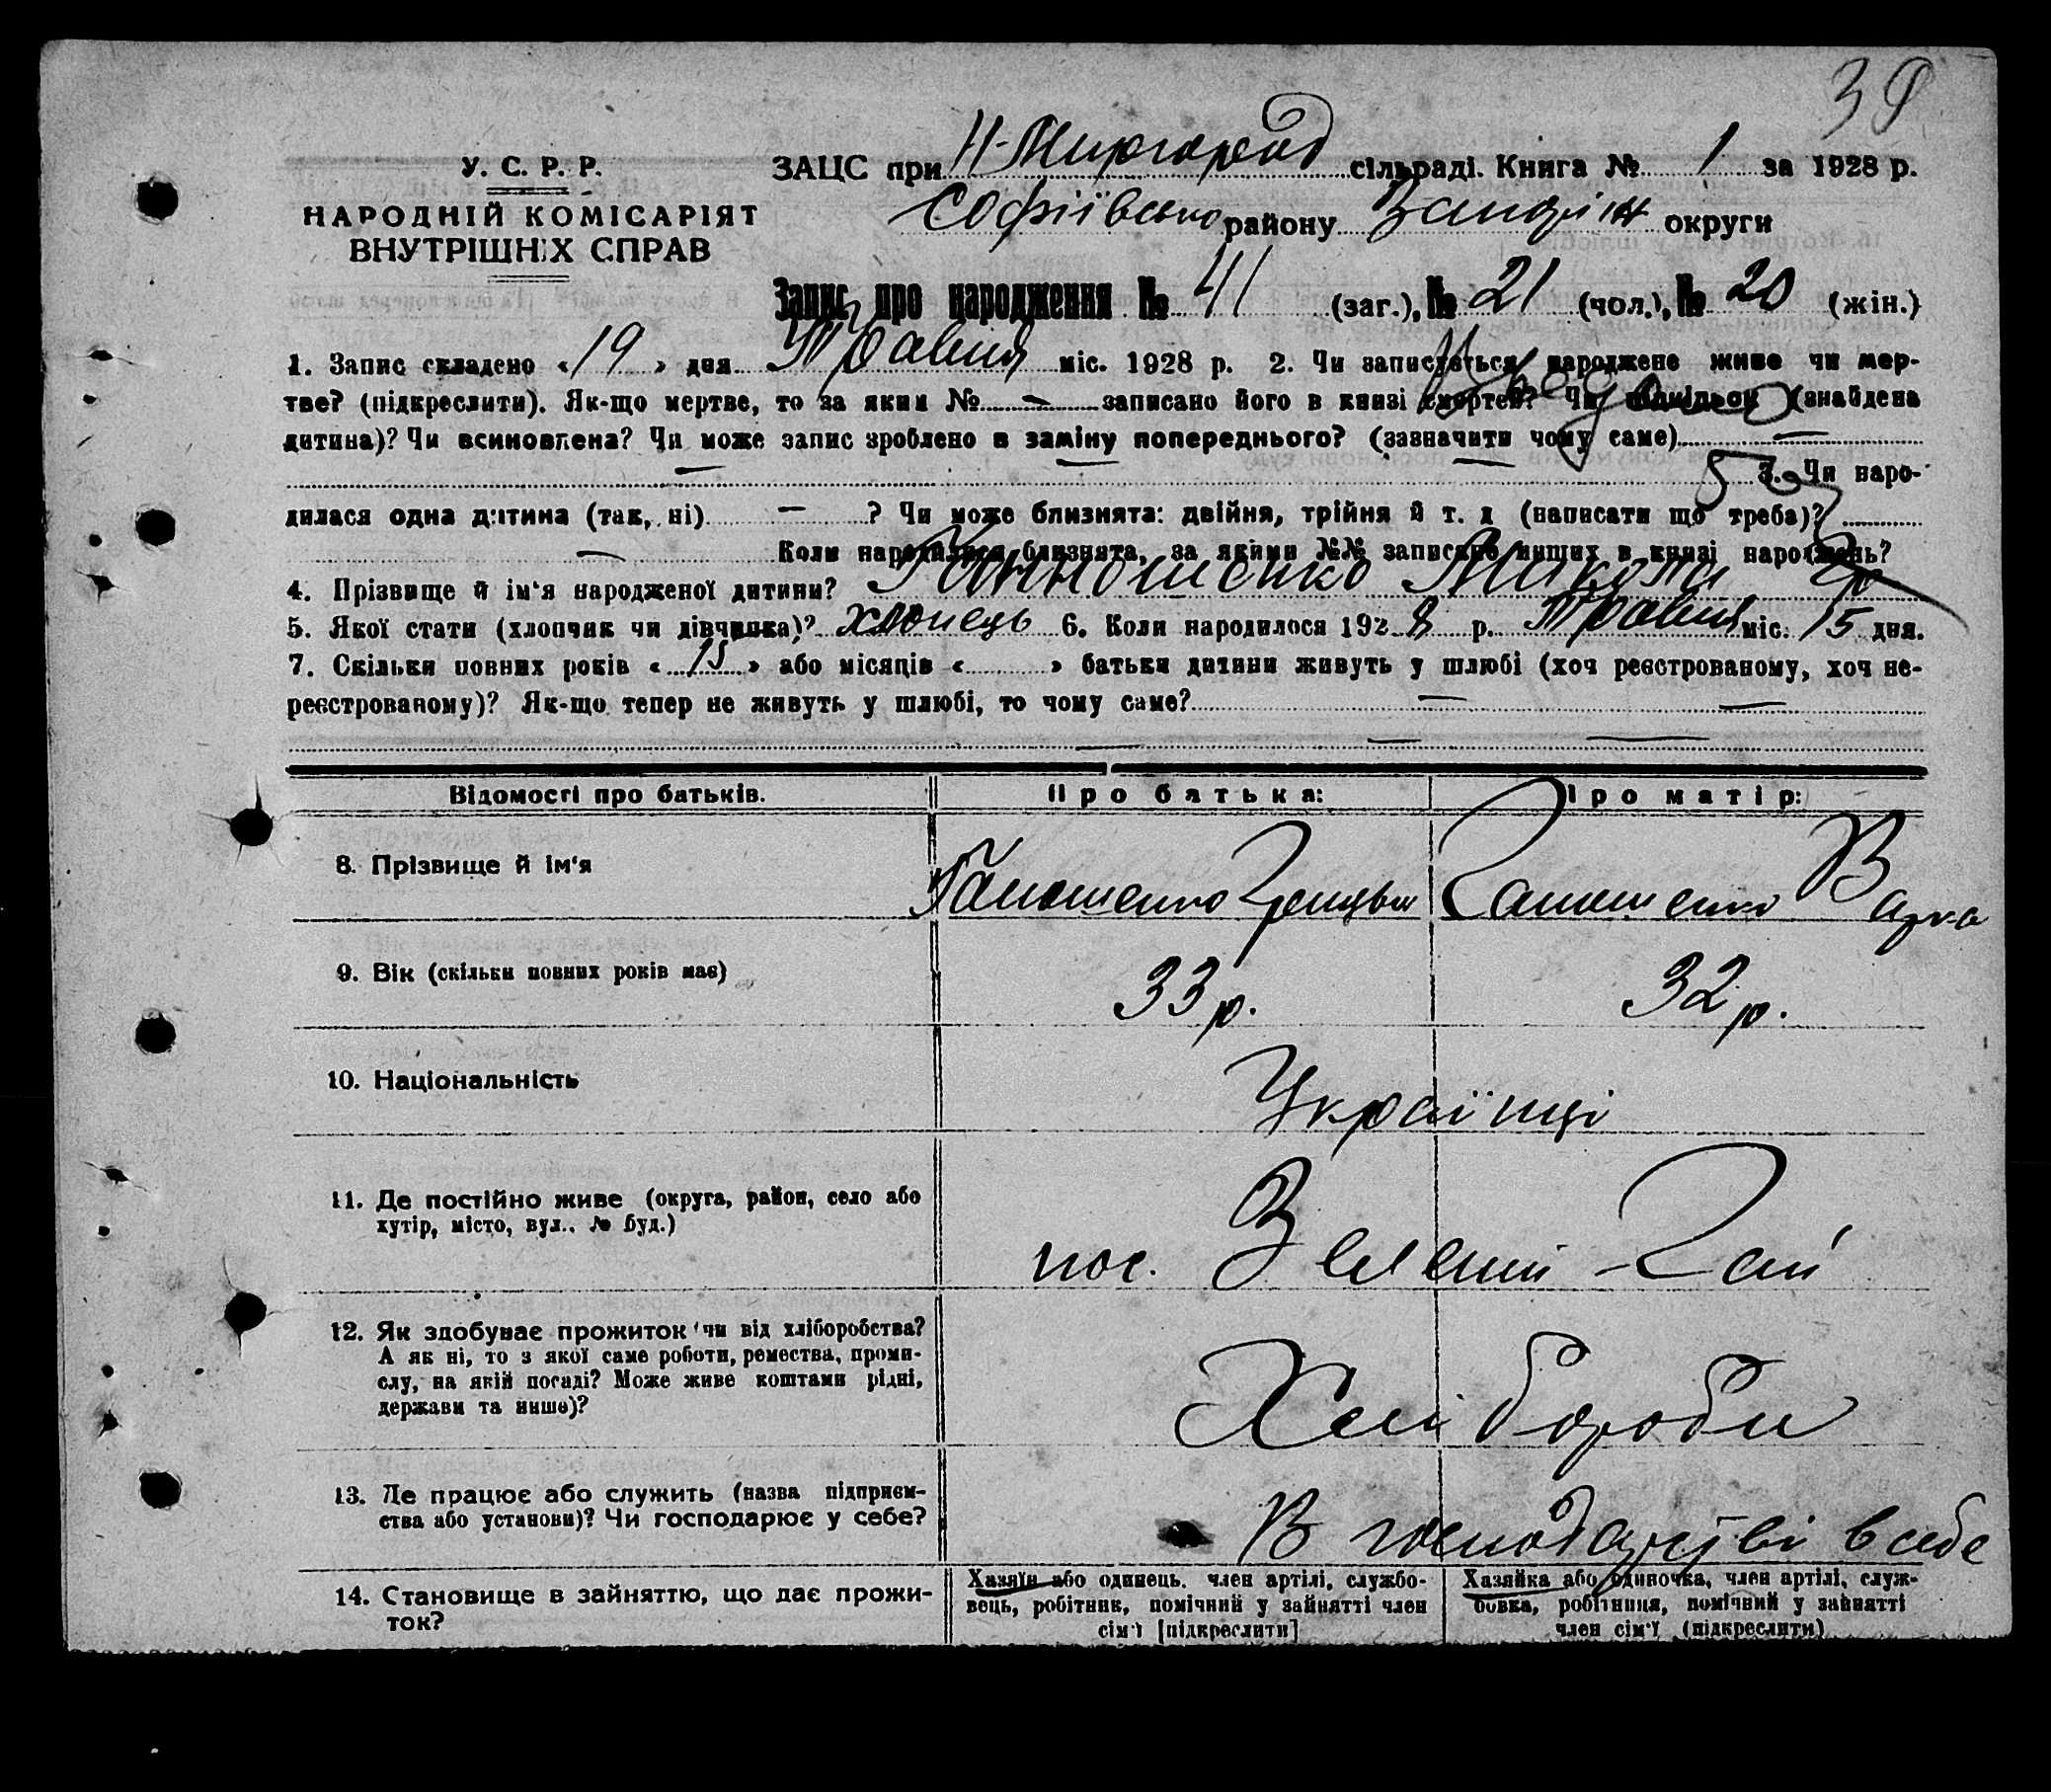 39
У. С. Р. Р.
НАРОДНІЙ КОМІСАРІЯТ
ВНУТРІШНІХ СПРАВ
ЗАЦС при Н-Миргород сільраді. Книга № 1 за 1928 р.
Софіївсько району Запоріж округи
Запис про народження № 41 (заг.), № 21 (чол.), № 20 (жін.)
1. Запис складено «19» дня Травня міс. 1928 р. 2. Чи записується народжене живе чи мер-
тве? (підкреслити). Як-що мертве, то за яким № — записано його в книзі смертей? Чи підкідьок (знайдена
дитина)? Чи всиновлена? Чи може запис зроблено в заміну попереднього? (зазначити чому саме) —
— — — 3. Чи наро-
дилася одна дитина (так, ні) — ? Чи може близнята: двійня, трійня й т. д (написати що треба)?
— Коли народилися близнята, за якими №№ записано инших в книзі народжень?
4. Прізвище й ім'я народженої дитини? Ганношенко Микола
5. Якої стати (хлопчик чи дівчинка)? хлопець 6. Коли народилося 1928 р. Травня міс. 15 дня.
7. Скільки повних років «15» або місяців « » батьки дитини живуть у шлюбі (хоч реєстрованому, хоч не-
реєстрованому)? Як-що тепер не живуть у шлюбі, то чому саме? — —
— — —
Відомості про батьків. Про батька: Про матір:
8. Прізвище й ім'я Ганошенко Грицько Ганошенко Варка
9. Вік (скільки повних років має) 33 р. 32 р.
10. Національність Українці
11. Де постійно живе (округа, район, село або
хутір, місто, вул., № буд.) пос. Зелений-Гай
12. Як здобуває прожиток чи від хліборобства?
А як ні, то з якої саме роботи, ремества, проми-
слу, на якій посаді? Може живе коштами рідні,
держави та инше)? Хлібороби
13. Де працює або служить (назва підприєм-
ства або установи)? Чи господарює у себе? В господарстві в себе
14. Становище в зайняттю, що дає прожи-
ток?
Хазяїн або одинець, член артілі, службо-
вець, робітник, помічний у зайнятті член
сім'ї [підкреслити]
Хазяйка або одиночка, член артілі, служ-
бовка, робітниця, помічний у зайнятті
член сім'ї (підкреслити)